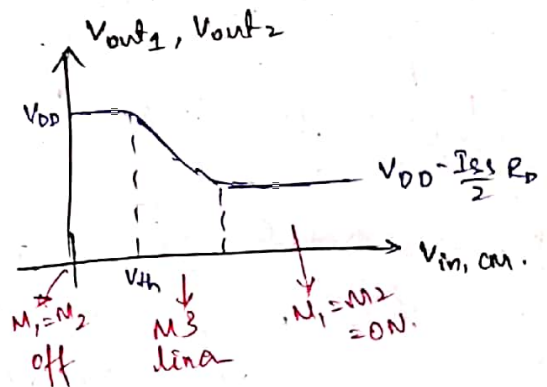 Vout1, Vout2
VDD
VDD - Iss/2 RD
Vin, CM.
Vth
M1=M2
off
M3
lina
M1=M2
=ON.